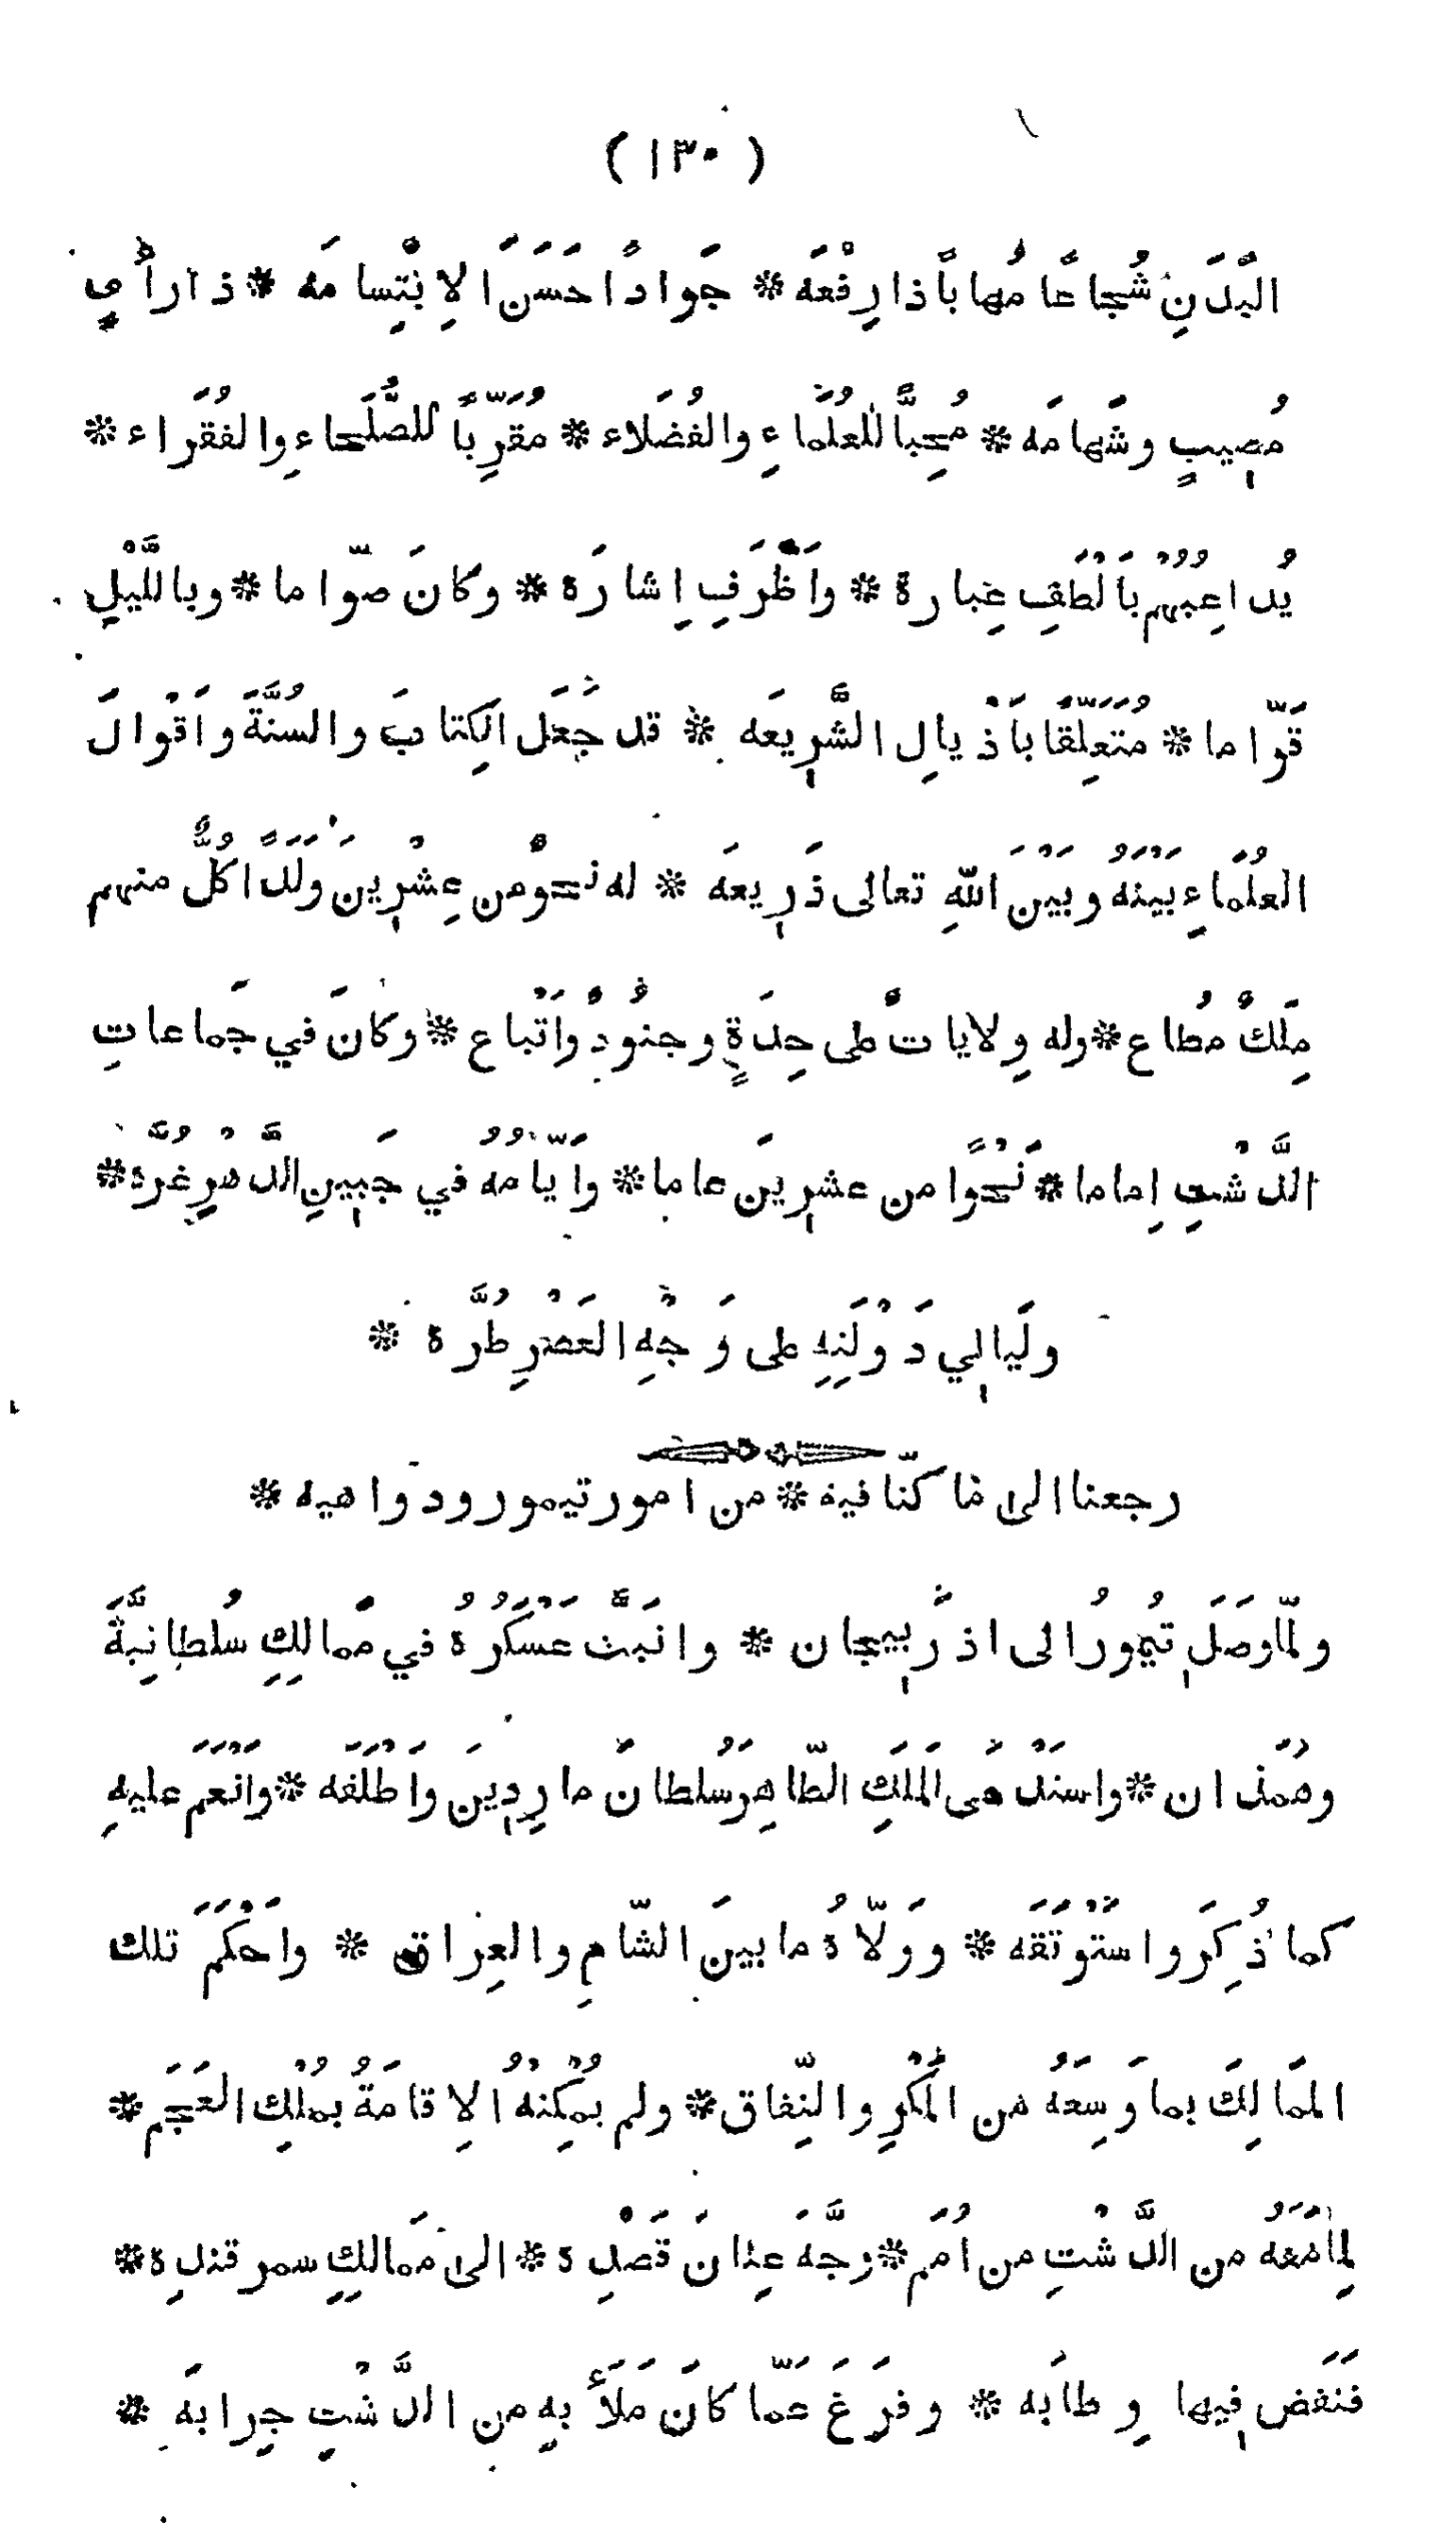 ( ١٣٠ )
البَدَنِ شُجاعًا مُهابًا ذا رِفْعَه * جَوادًا حَسَنَ الاِبْتِسامَه * ذا رأْيٍ
مُصِيبٍ وشَهامَه * مُحِبًّا لِلعُلَماءِ والفُضَلاء * مُقَرِّبًا لِلصُّلَحاءِ والفُقَراء *
يُداعِبُهُمْ بِاَلْطَفِ عِبارة * واَظْرَفِ اِشارَة * وكانَ صَوّاما * وبِاللَّيْلِ
قَوّاما * مُتَعَلِّقًا بِاَذْيالِ الشَّرِيعَه * قد جَعَل الكِتابَ والسُنَّةَ واَقْوالَ
العُلَماءِ بَيْنَهُ وبَيْنَ اللّهِ تعالى ذَرِيعَه * له نحوٌ من عِشْرِينَ ولَدًا كُلٌّ منهم
مَلِكٌ مُطاع * وله وِلاياتٌ على حِدَةٍ وجنُودٌ واَتْباع * وكانَ في جَماعاتِ
الدَّشْتِ اِماما * نَحْوًا من عشرِينَ عاما * واَيّامُهُ في جَبِينِ الدَّهْرِ غُرَّة *
ولَيالِي دَوْلَتِهِ على وَجْهِ العَصْرِ طُرَّة *
رجعنا الى ما كنّا فيه * من امور تيمور ودواهيه *
ولمّا وصَلَ تيمُورُ الى اذرَبِيجان * وانبَثَّ عَسْكَرُهُ في مَمالِكِ سُلطانِيَّةَ
وهَمَذان * واسْتَدْعَى المَلَكِ الطّاهِرَ سُلطانَ مارِدِينَ واَطْلَقَه * واَنْعَمَ عليهِ
كما ذُكِرَ واستَوْثَقَه * ووَلّاهُ ما بينَ الشّامِ والعِراق * واَحْكَمَ تلك
المَمالِكَ بما وَسِعَهُ من المَكْرِ والنِّفاق * ولم يُمْكِنْهُ الاِقامَةُ بمُلْكِ العَجَم *
لِما مَعَهُ من الدَّشْتِ من اُمَم * وجَّهَ عِنانَ قَصْدِه * الى مَمالكِ سمرقندِه *
فنَفَض فِيها وِطابَه * وفرَغَ عَمّا كانَ مَلَأَ بِهِ من الدَّشْتِ جِرابَه *